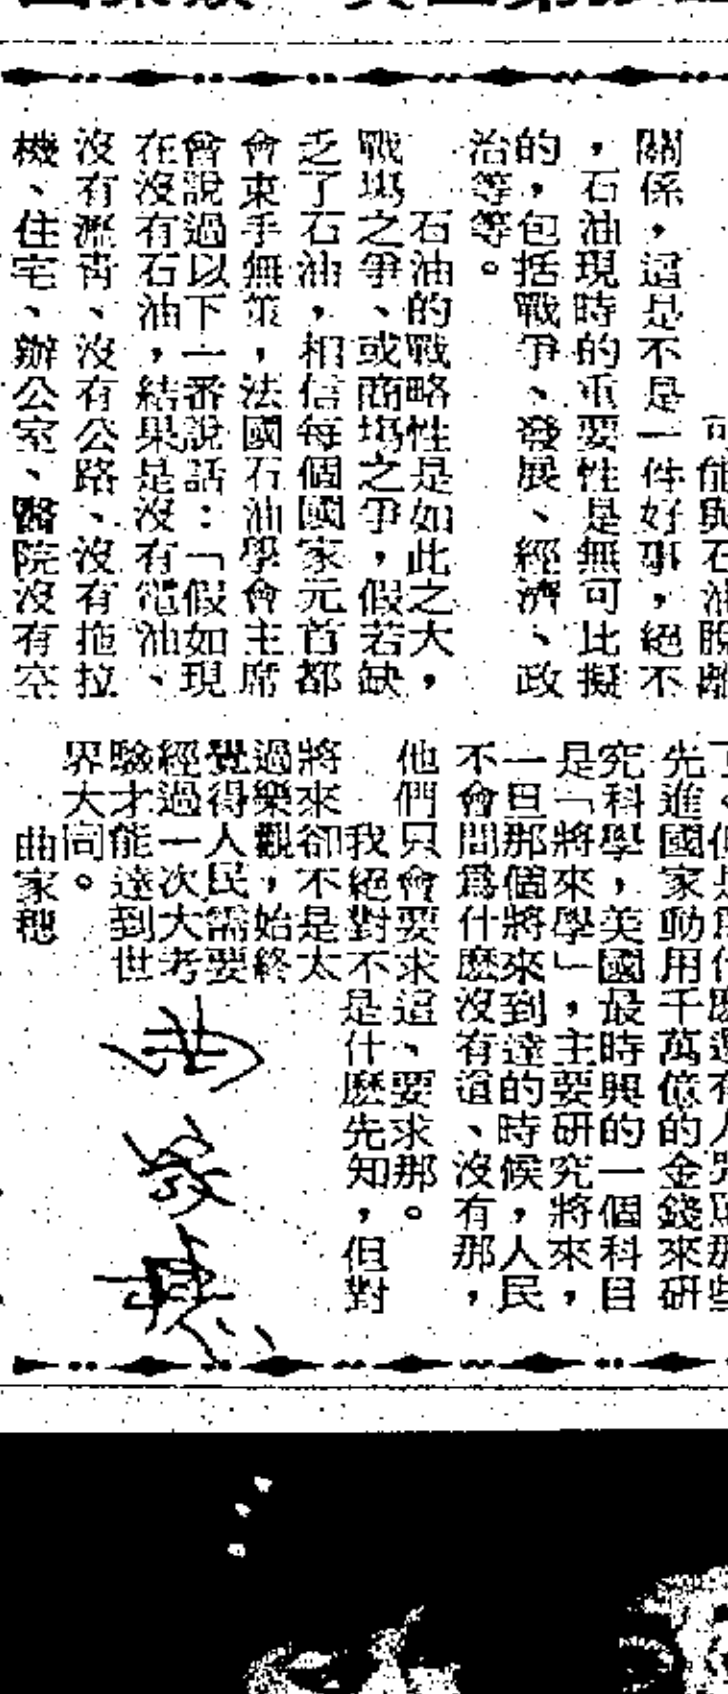 可能與石油脫離
關係，這是不是一件好事，絕不
，石油現時的重要性是無可比擬
的，包括戰爭、發展、經濟、政
治等等。
石油的戰略性是如此之大，
戰場之爭、或商場之爭，假若缺
乏了石油，相信每個國家元首都
會束手無策，法國石油學會主席
曾說過以下一番說話：「假如現
在沒有石油，結果是沒有電油、
沒有瀝青、沒有公路、沒有拖拉
機、住宅、辦公室、醫院沒有空
先進國家動用千萬億的金錢來研
究科學，美國最時興的一個科目
是「將來學」，主要研究將來，
一旦那個將來到達的時候，人民
不會問爲什麽沒有這、沒有那，
他們只會要求這、要求那。
我絕對不是什麽先知，但對
將來卻不是太
過樂觀，始終
覺得人民需要
經過一次大考
驗才能達到世
界大同。
曲家穗
曲家穗